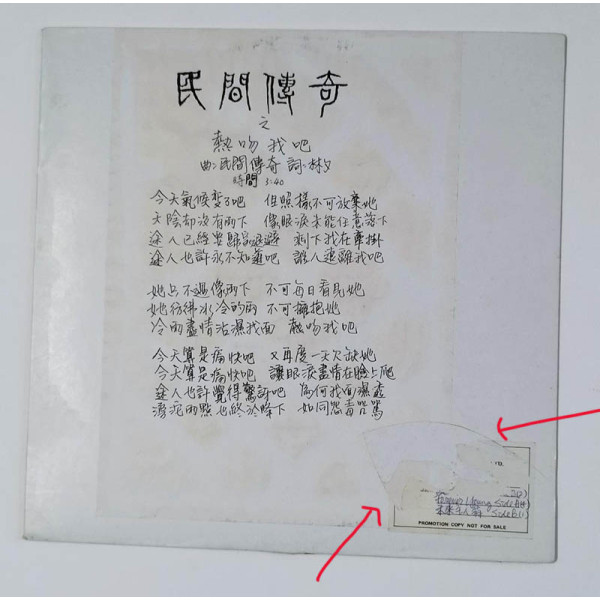 民間傳奇
之
熱吻我吧
曲:民間傳奇 詞:林夕
時間 3:40
今天氣候變了吧 但照樣不可放棄她
天陰却沒有雨下 像眼淚未能任意落下
途人已經要歸家避 剩下我在牽掛
途人也許永不知道吧 誰人遠離我吧
她只不過像雨下 不可每日看見她
她彷彿冰冷的雨 不可擁抱她
冷雨盡情沾濕我面 熱吻我吧
今天算是痛快吧 又再度一天欠缺她
今天算是痛快吧 讓眼淚盡情在臉上爬
途人也許覺得驚訝吧 為何我面濕透
滂沱雨點也終於降下 如同怨毒咒罵
PROMOTION COPY NOT FOR SALE